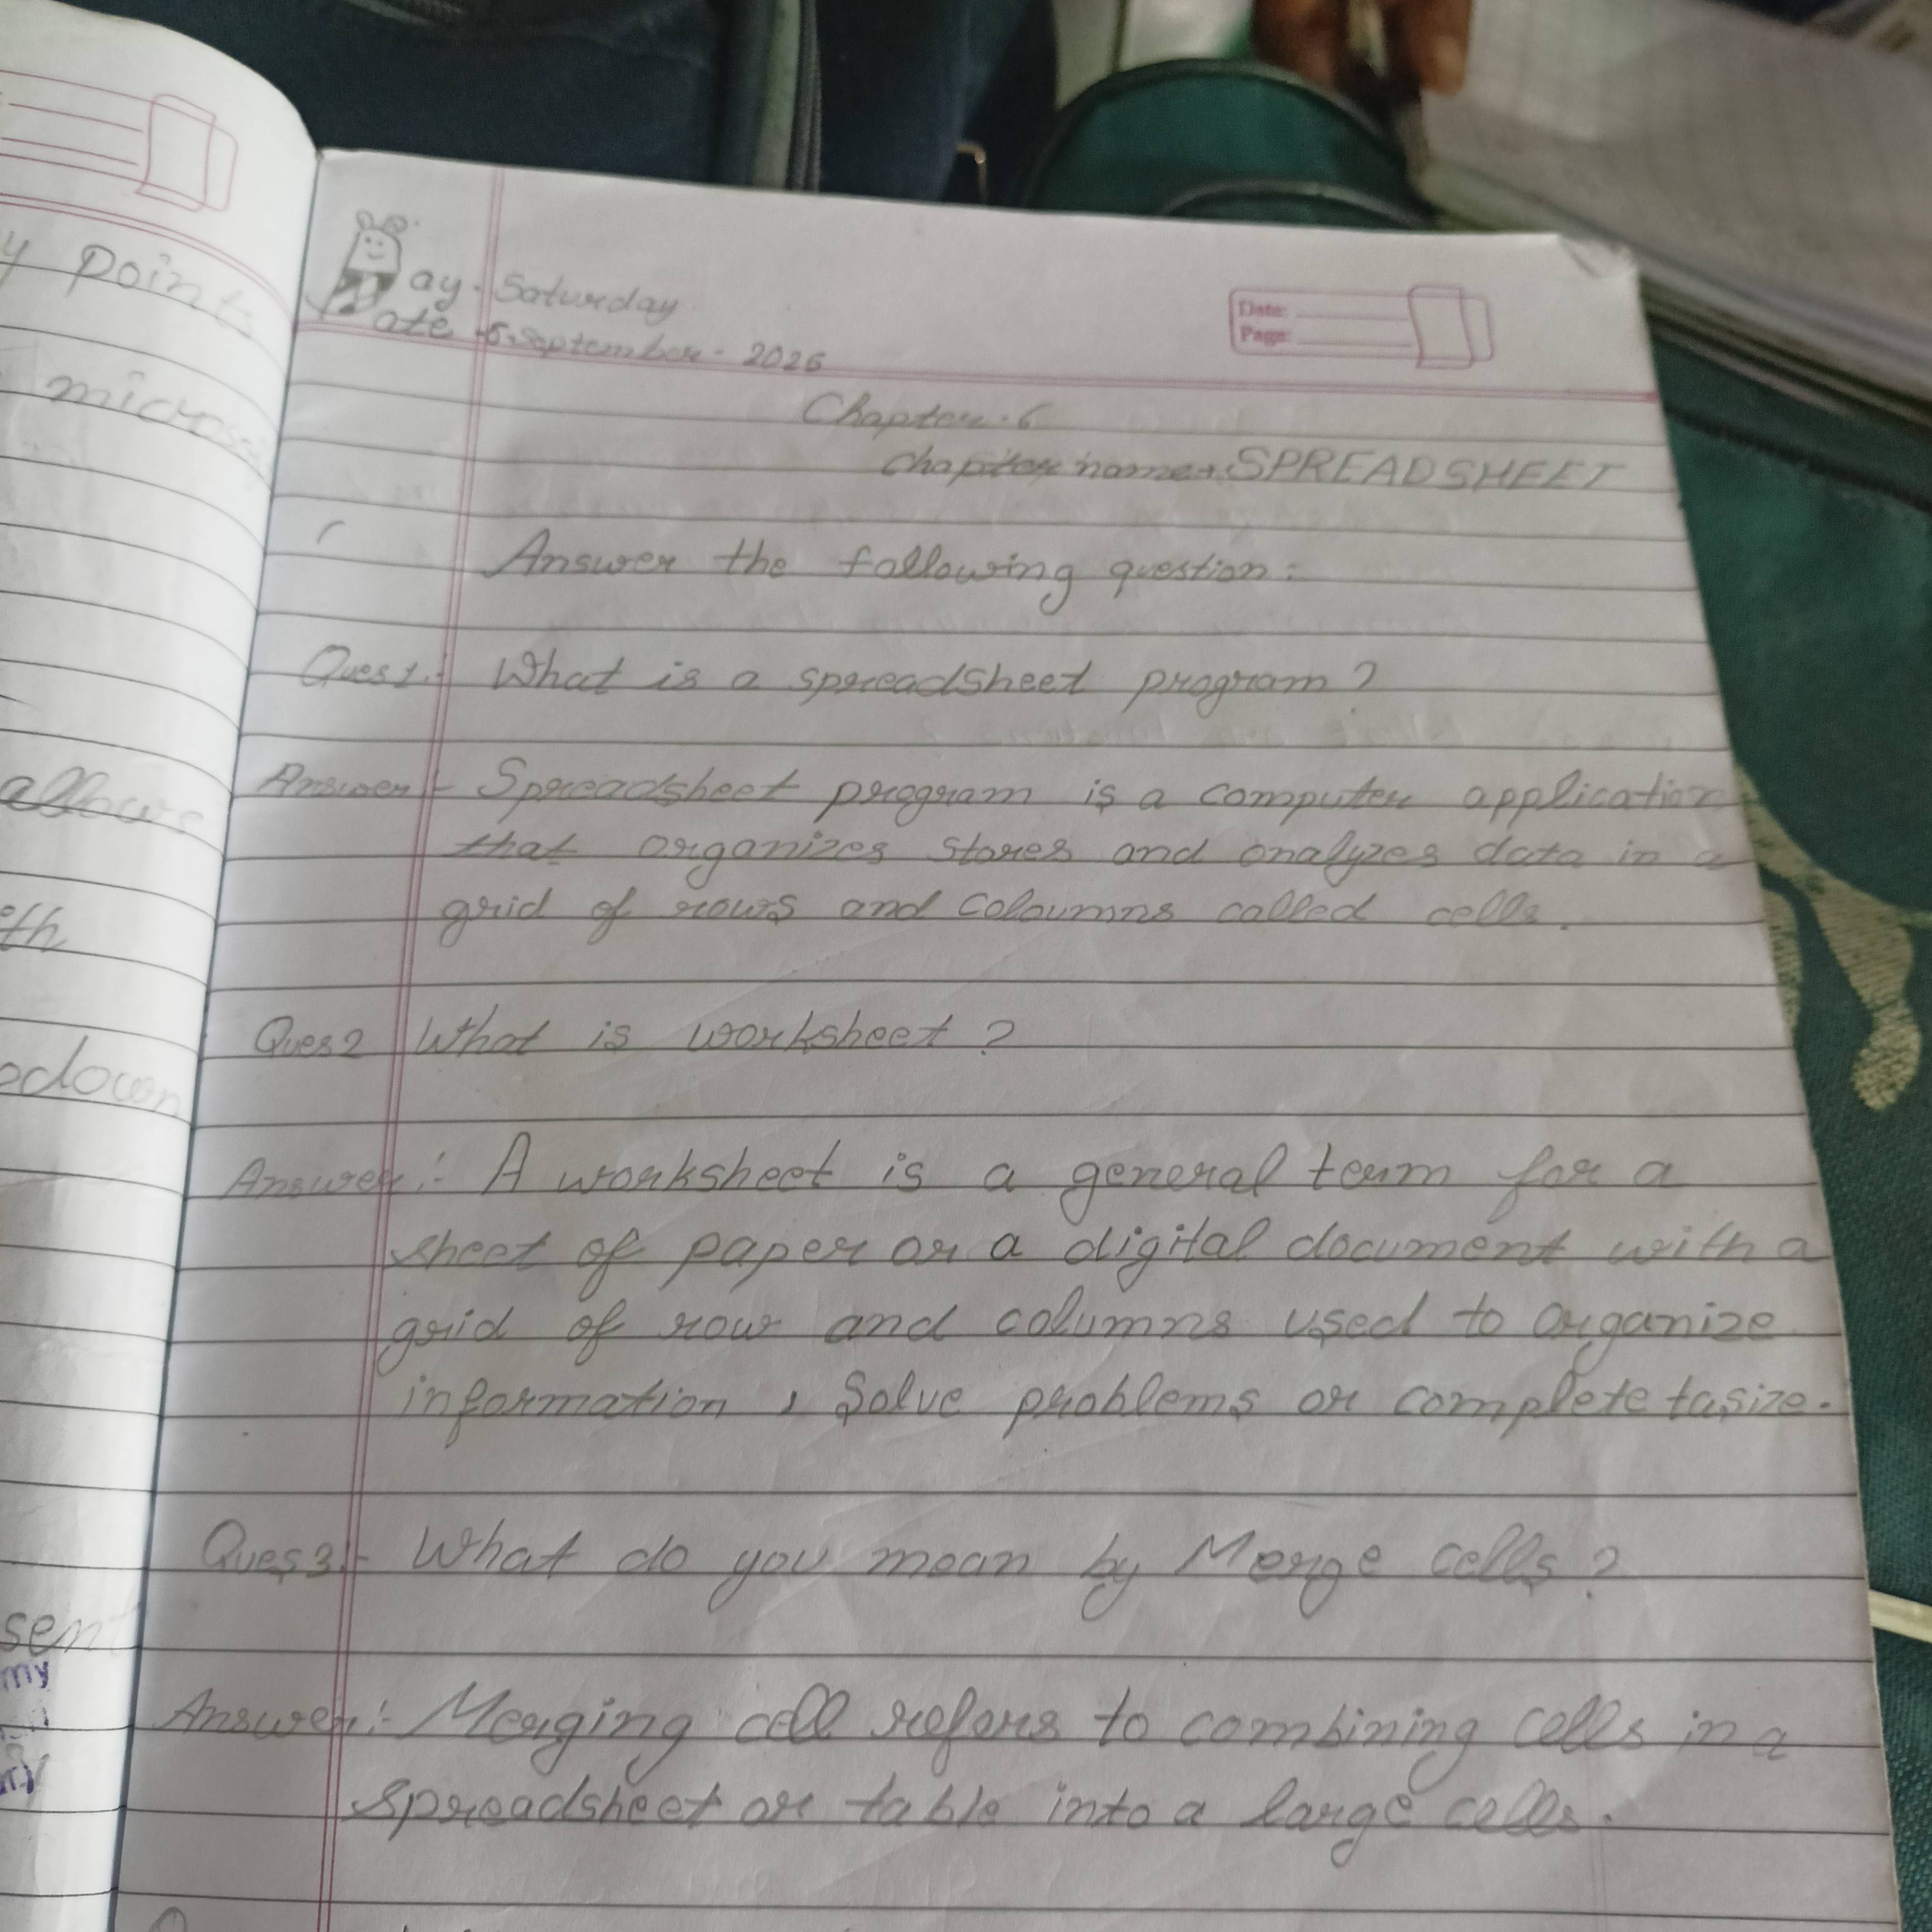 y point
microso
allows
ith
edown
sent
my
Day - Saturday
Date - 5 September - 2026
Date:
Page:
Chapter - 6
Chapter name → SPREADSHEET
Answer the following question :
Ques 1 :- What is a spreadsheet program ?
Answer :- Spreadsheet program is a computer application
that organizes stores and analyzes data in a
grid of rows and coloumns called cells.
Ques 2 What is worksheet ?
Answer :- A worksheet is a general term for a
sheet of paper or a digital document with a
grid of row and columns used to organize
information , Solve problems or complete tasize.
Ques 3 :- What do you mean by Merge cells ?
Answer :- Merging cell refers to combining cells in a
spreadsheet or table into a large cells.